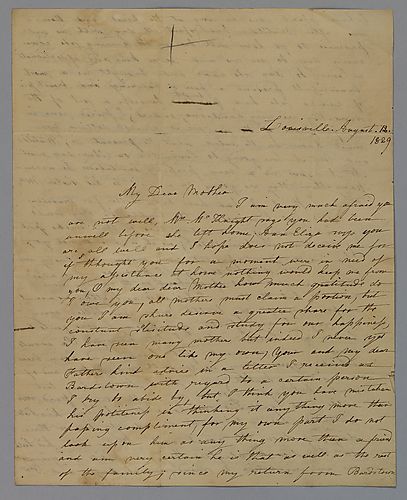 Louisville August 12.
1829
My Dear Mother
I am very much afraid you
are not well, Mrs McKnight says you had been
unwell before she left home, Ann Eliza says you
are all well and I hope does not deceive me for
if I thought you for a moment were in need of
my assistance at home nothing would keep me from
you, O my dear dear Mother how much gratitude do
I owe you, all mothers must claim a portion, but
you I am shure deserve a greater share for the
constant solicitude and study for our happiness,
I have seen many mothers but indeed I never yet
have seen one like my own, your and my dear
Father kind advice in a letter I received at
Bardstown with regard to a certain person
I try to abide by, but I think you have mistaken
his politeness in thinking it any thing more than
passing compliment for my own part I do not
look upon him as any thing more than a friend
and am very certain he is that as well as the rest
of the family; since my return from Bardstown